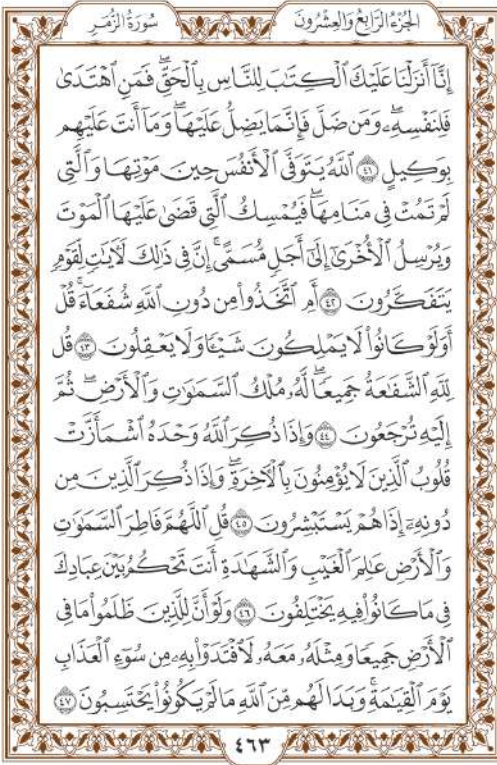 الجُزْءُ الرَّابِعُ وَالعِشْرُونَ سُورَةُ الزُّمَرِ
إِنَّآ أَنزَلْنَا عَلَيْكَ ٱلْكِتَٰبَ لِلنَّاسِ بِٱلْحَقِّۖ فَمَنِ ٱهْتَدَىٰ
فَلِنَفْسِهِۦۖ وَمَن ضَلَّ فَإِنَّمَا يَضِلُّ عَلَيْهَاۖ وَمَآ أَنتَ عَلَيْهِم
بِوَكِيلٍ ٤١ ٱللَّهُ يَتَوَفَّى ٱلْأَنفُسَ حِينَ مَوْتِهَا وَٱلَّتِى
لَمْ تَمُتْ فِى مَنَامِهَاۖ فَيُمْسِكُ ٱلَّتِى قَضَىٰ عَلَيْهَا ٱلْمَوْتَ
وَيُرْسِلُ ٱلْأُخْرَىٰٓ إِلَىٰٓ أَجَلٍ مُّسَمًّىۚ إِنَّ فِى ذَٰلِكَ لَءَايَٰتٍ لِّقَوْمٍ
يَتَفَكَّرُونَ ٤٢ أَمِ ٱتَّخَذُوا۟ مِن دُونِ ٱللَّهِ شُفَعَآءَۚ قُلْ
أَوَلَوْ كَانُوا۟ لَا يَمْلِكُونَ شَيْـًٔا وَلَا يَعْقِلُونَ ٤٣ قُل
لِّلَّهِ ٱلشَّفَٰعَةُ جَمِيعًاۖ لَّهُۥ مُلْكُ ٱلسَّمَٰوَٰتِ وَٱلْأَرْضِۖ ثُمَّ
إِلَيْهِ تُرْجَعُونَ ٤٤ وَإِذَا ذُكِرَ ٱللَّهُ وَحْدَهُ ٱشْمَأَزَّتْ
قُلُوبُ ٱلَّذِينَ لَا يُؤْمِنُونَ بِٱلْءَاخِرَةِۖ وَإِذَا ذُكِرَ ٱلَّذِينَ مِن
دُونِهِۦٓ إِذَا هُمْ يَسْتَبْشِرُونَ ٤٥ قُلِ ٱللَّهُمَّ فَاطِرَ ٱلسَّمَٰوَٰتِ
وَٱلْأَرْضِ عَٰلِمَ ٱلْغَيْبِ وَٱلشَّهَٰدَةِ أَنتَ تَحْكُمُ بَيْنَ عِبَادِكَ
فِى مَا كَانُوا۟ فِيهِ يَخْتَلِفُونَ ٤٦ وَلَوْ أَنَّ لِلَّذِينَ ظَلَمُوا۟ مَا فِى
ٱلْأَرْضِ جَمِيعًا وَمِثْلَهُۥ مَعَهُۥ لَٱفْتَدَوْا۟ بِهِۦ مِن سُوٓءِ ٱلْعَذَابِ
يَوْمَ ٱلْقِيَٰمَةِۚ وَبَدَا لَهُم مِّنَ ٱللَّهِ مَا لَمْ يَكُونُوا۟ يَحْتَسِبُونَ ٤٧
٤٦٣